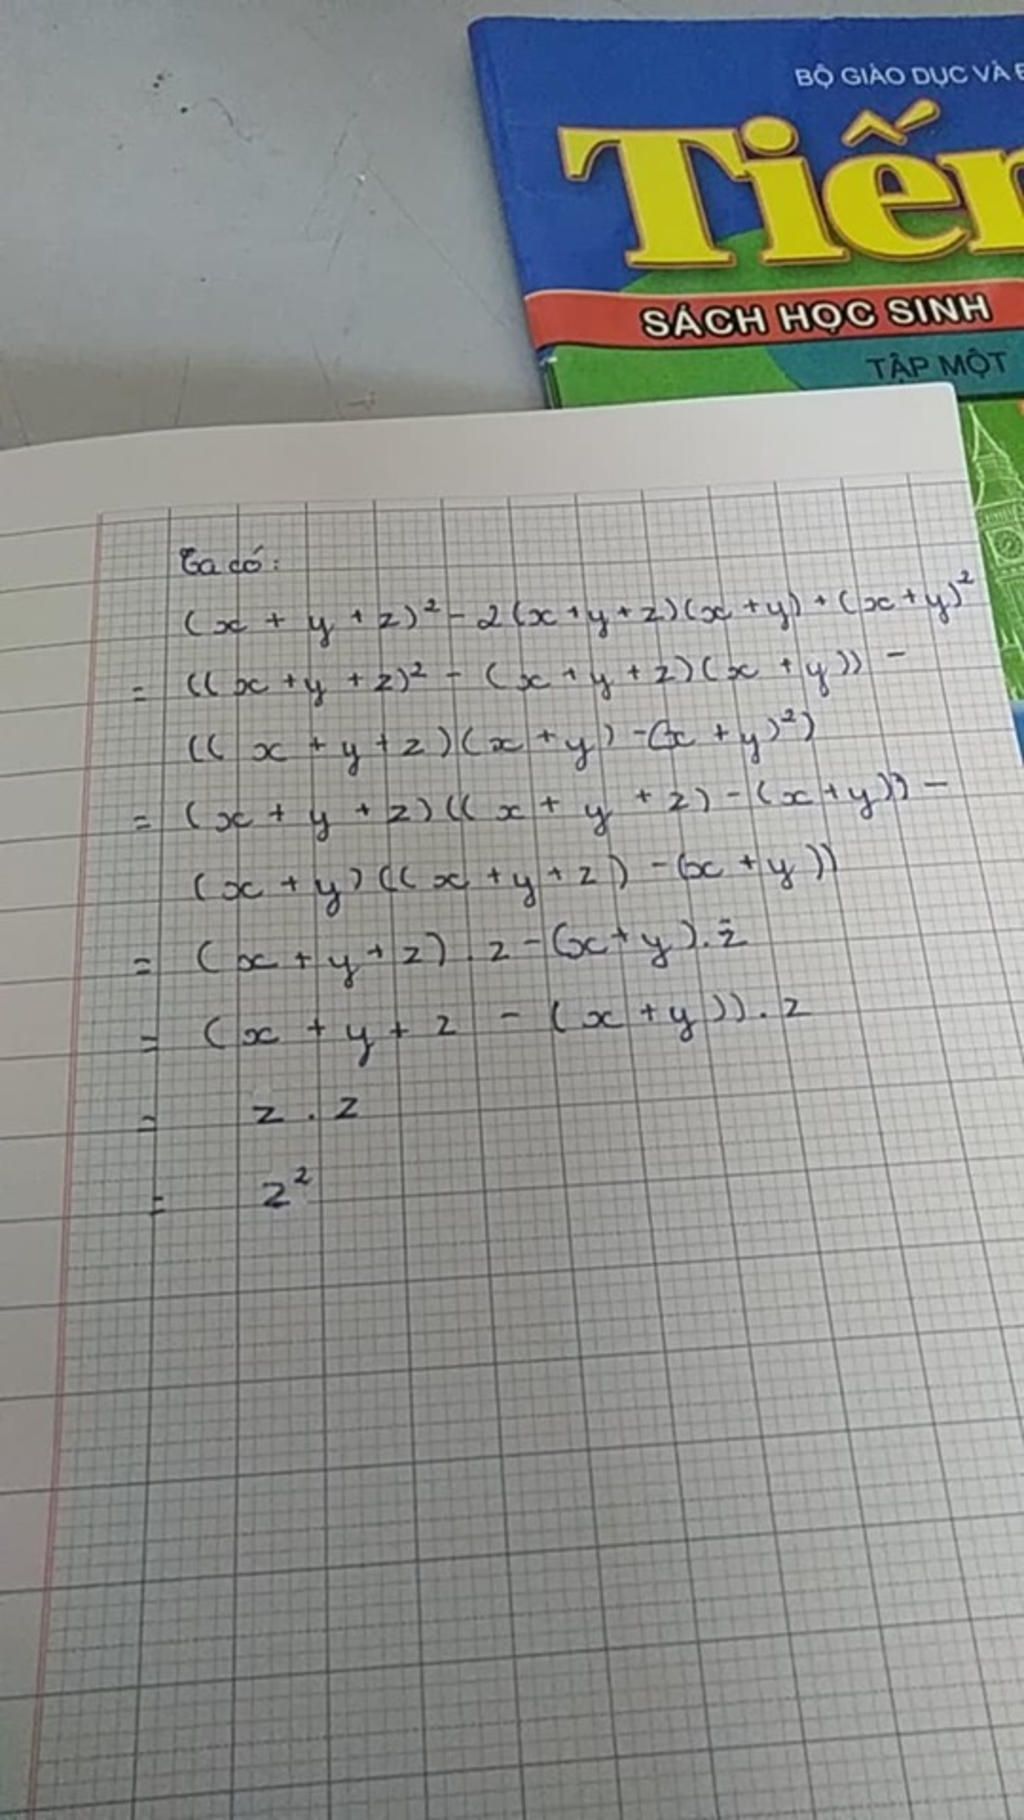 BỘ GIÁO DỤC VÀ
Tiến
SÁCH HỌC SINH
TẬP MỘT
Ta có:
(x + y + z)² - 2(x+y+z)(x+y) + (x+y)²
= ((x+y+z)² - (x+y+z)(x+y)) -
((x+y+z)(x+y) -(x+y)²)
= (x+y+z)((x+y+z) - (x+y)) -
(x+y)((x+y+z) -(x+y))
= (x+y+z).z -(x+y).z
= (x+y+z - (x+y)).z
= z.z
= z²